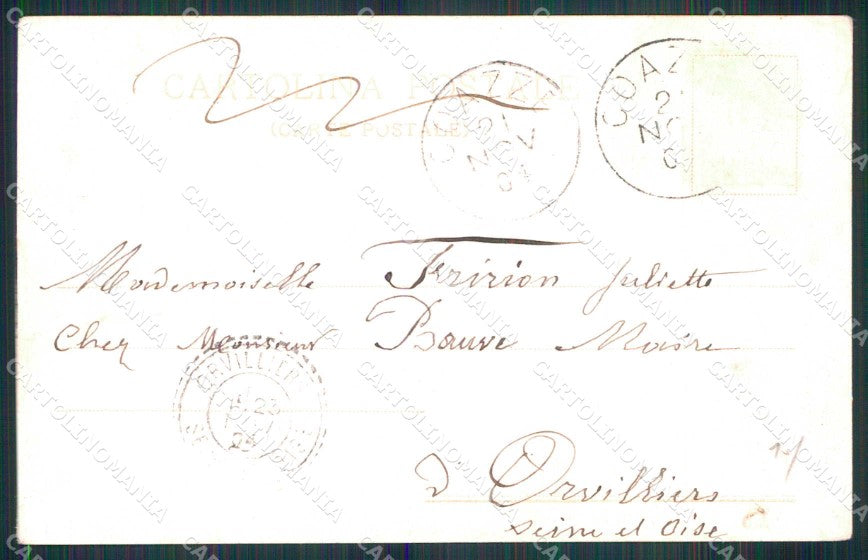 CARTOLINA POSTALE
(CARTE POSTALE)
COAZZE
21
NOV
COAZ
2
NO
Mademoiselle Fririon Juliette
Chez Monsieur Bauve Maire
ORVILLIER
23
à Orvilliers
Seine et Oise
CARTOLINOMANIA